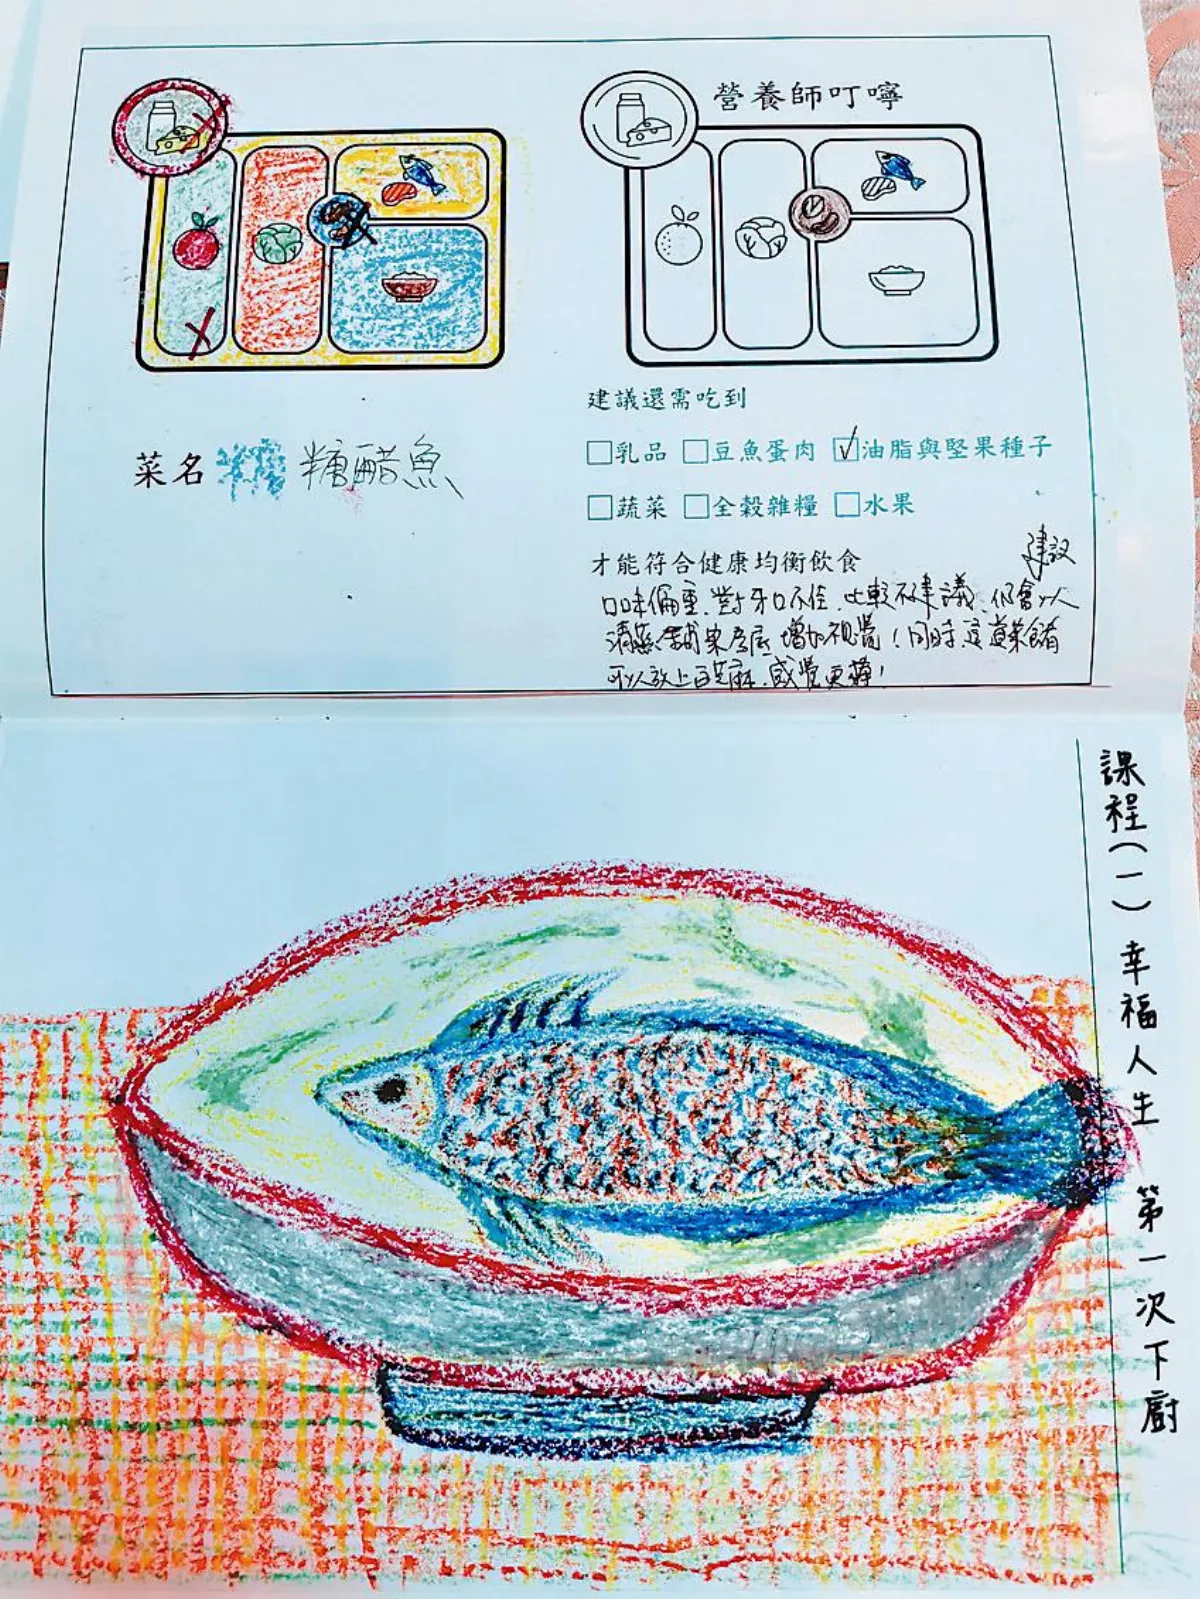 營養師叮嚀
菜名 糖醋魚
建議還需吃到
□乳品 □豆魚蛋肉 ☑油脂與堅果種子
□蔬菜 □全穀雜糧 □水果
才能符合健康均衡飲食
建議
口味偏重、對牙口不佳、比較不建議、仍會以
清蒸 增加視覺!同時這道菜餚
可以放上白芝麻、感覺更棒!
課程(一)幸福人生 第一次下廚